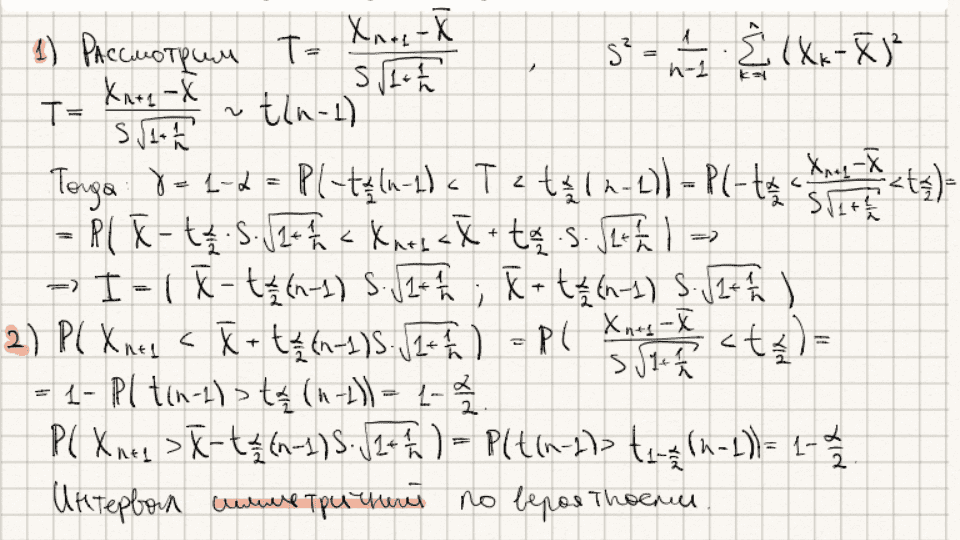 1) Рассмотрим T = (X_{n+1} − X̄) / (S√(1+1/n)) , S² = 1/(n−1) · Σ_{k=1}^{n} (X_k − X̄)²
T = (X_{n+1} − X̄) / (S√(1+1/n)) ~ t(n−1)
Тогда: γ = 1−α = P(−t_{α/2}(n−1) < T < t_{α/2}(n−1)) = P(−t_{α/2} < (X_{n+1} − X̄) / (S√(1+1/n)) < t_{α/2}) =
= P( X̄ − t_{α/2} · S · √(1+1/n) < X_{n+1} < X̄ + t_{α/2} · S · √(1+1/n) ) ⇒
⇒ I = ( X̄ − t_{α/2}(n−1) S·√(1+1/n) ; X̄ + t_{α/2}(n−1) S·√(1+1/n) )
2) P( X_{n+1} < X̄ + t_{α/2}(n−1)S·√(1+1/n) ) = P( (X_{n+1} − X̄) / (S√(1+1/n)) < t_{α/2} ) =
= 1 − P( t(n−1) > t_{α/2}(n−1)) = 1 − α/2.
P( X_{n+1} > X̄ − t_{α/2}(n−1)S·√(1+1/n) ) = P(t(n−1) > t_{1−α/2}(n−1)) = 1 − α/2.
Интервал симметричный по вероятности.